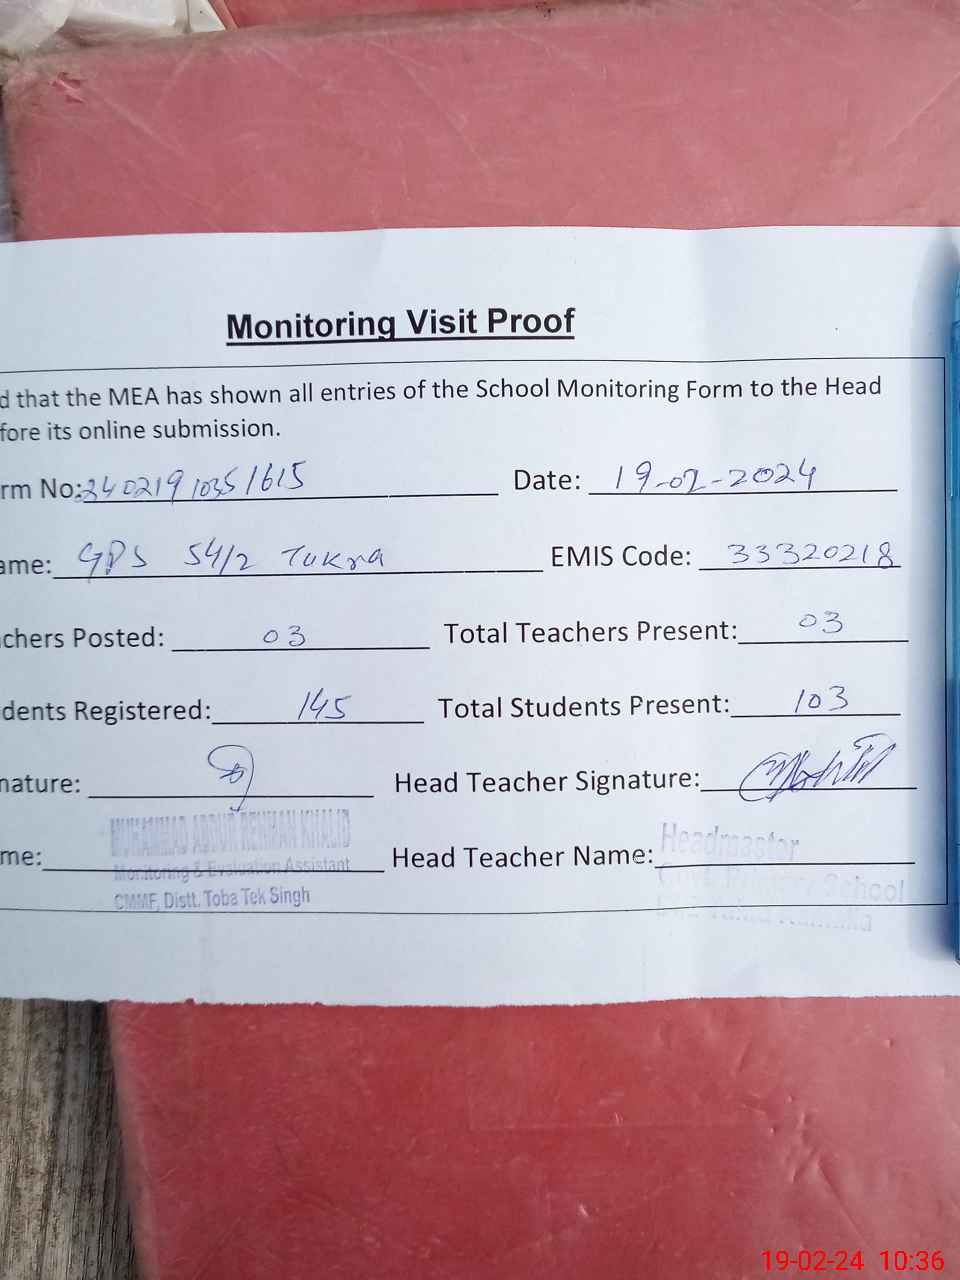 Monitoring Visit Proof
d that the MEA has shown all entries of the School Monitoring Form to the Head
fore its online submission.
rm No: 24021910351615 Date: 19-02-2024
ame: GPS 54/2 Tukra EMIS Code: 33320218
chers Posted: 03 Total Teachers Present: 03
dents Registered: 145 Total Students Present: 103
nature: Head Teacher Signature:
me: MUHAMMAD ABDUR REHMAN KHALID Head Teacher Name: Headmaster
Monitoring & Evaluation Assistant Govt. Primary School
CMMF, Distt. Toba Tek Singh
19-02-24 10:36